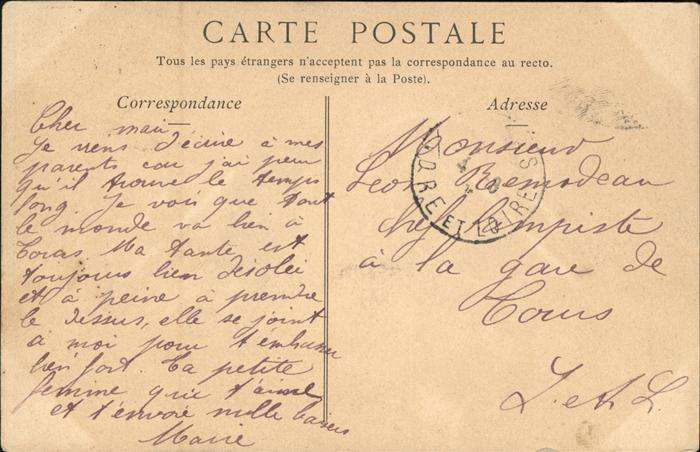 CARTE POSTALE
Tous les pays étrangers n'acceptent pas la correspondance au recto.
(Se renseigner à la Poste).
Correspondance
Cher mari
Je viens d'écrire à mes
parents car j'ai peur
qu'il trouve le temps
long. Je vois que tout
le monde va bien à
Ma tante est
toujours bien désolée
et à peine à prendre
le dessus, elle se joint
à moi pour t'embrasser
bien fort. Ta petite
femme qui t'aime
et t'envoie mille baisers
Marie
Adresse
Monsieur
Léon
chef lampiste
à la gare de
Tours
I. et L.
INDRE ET LOIRE